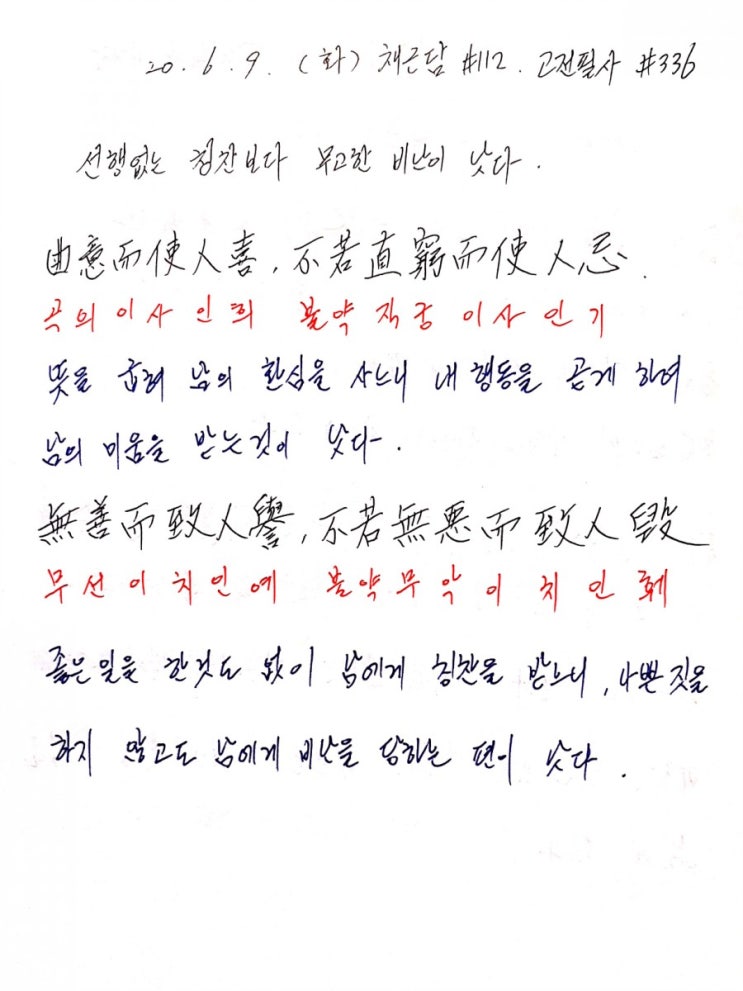 20. 6. 9. (화) 채근담 #112. 고전필사 #336
선행없는 칭찬보다 무고한 비난이 낫다.
曲意而使人喜, 不若直窮而使人忌.
곡의이사인희 불약직궁이사인기
뜻을 굽혀 남의 환심을 사느니 내 행동을 곧게 하여
남의 미움을 받는것이 낫다.
無善而致人譽, 不若無悪而致人毀
무선이치인예 불약무악이치인훼
좋은일을 한것도 없이 남에게 칭찬을 받느니, 나쁜짓을
하지 않고도 남에게 비난을 당하는 편이 낫다.